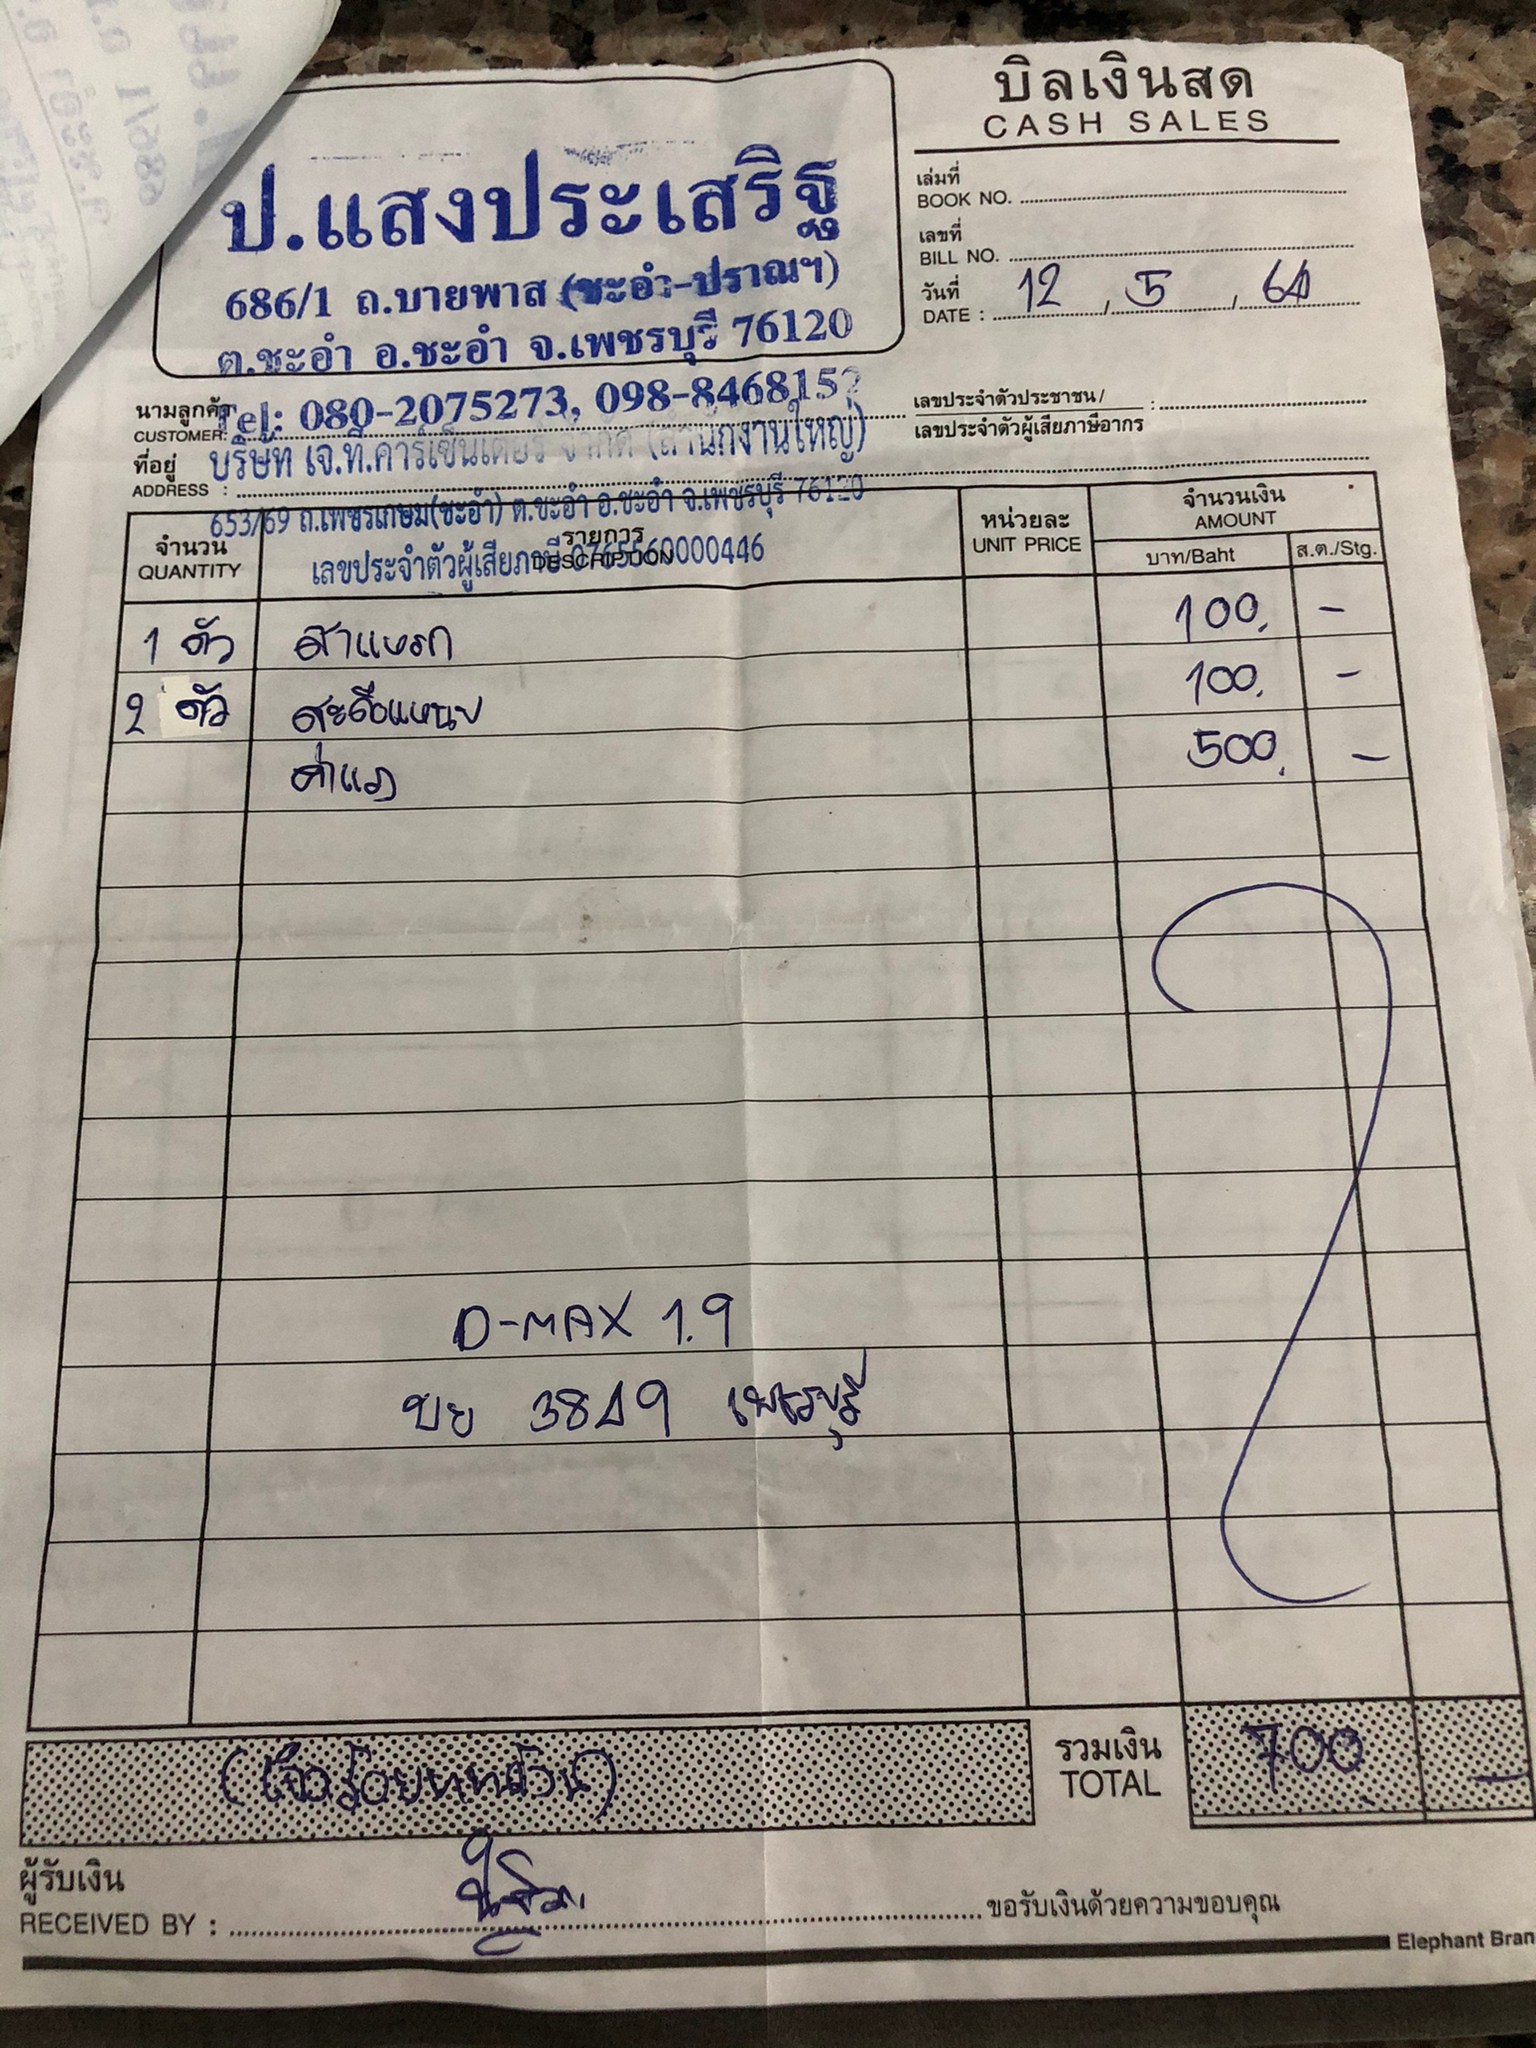 บิลเงินสด
CASH SALES
ป.แสงประเสริฐ
686/1 ถ.บายพาส (ชะอำ-ปราณฯ)
ต.ชะอำ อ.ชะอำ จ.เพชรบุรี 76120
Tel: 080-2075273, 098-8468152
เล่มที่
BOOK NO.
เลขที่
BILL NO.
วันที่
DATE : 12 , 5 , 64
นามลูกค้า
CUSTOMER
บริษัท เจ.ที.คาร์เซ็นเตอร์ จำกัด (สำนักงานใหญ่)
เลขประจำตัวประชาชน /
เลขประจำตัวผู้เสียภาษีอากร :
ที่อยู่
ADDRESS :
653/69 ถ.เพชรเกษม(ชะอำ) ต.ชะอำ อ.ชะอำ จ.เพชรบุรี 76120
เลขประจำตัวผู้เสียภาษี 0765560000446
จำนวน
QUANTITY
รายการ
DESCRIPTION
หน่วยละ
UNIT PRICE
จำนวนเงิน
AMOUNT
บาท/Baht ส.ต./Stg.
1 ตัว สาแหรก 100. -
2 ตัว สะดือแหนบ 100. -
ค่าแรง 500. -
D-MAX 1.9
บย 3849 เพชรบุรี
(เจ็ดร้อยบาทถ้วน)
รวมเงิน
TOTAL
700 -
ผู้รับเงิน
RECEIVED BY :
ขอรับเงินด้วยความขอบคุณ
Elephant Bran